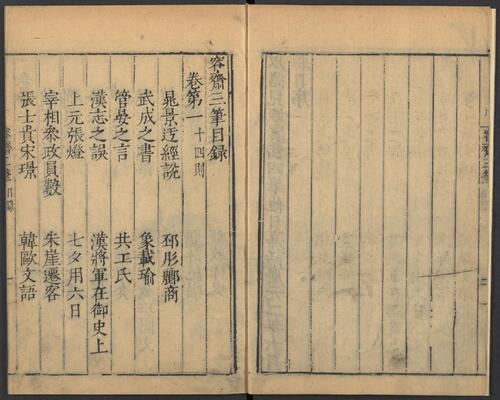 容齋三筆目録
卷第一 十四則
晁景迂經說 邳彤酈商
武成之書 象載瑜
管晏之言 共工氏
漢志之誤 漢將軍在御史上
上元張燈 七夕用六日
宰相參政員數 朱崖遷客
張士貴宋璟 韓歐文語